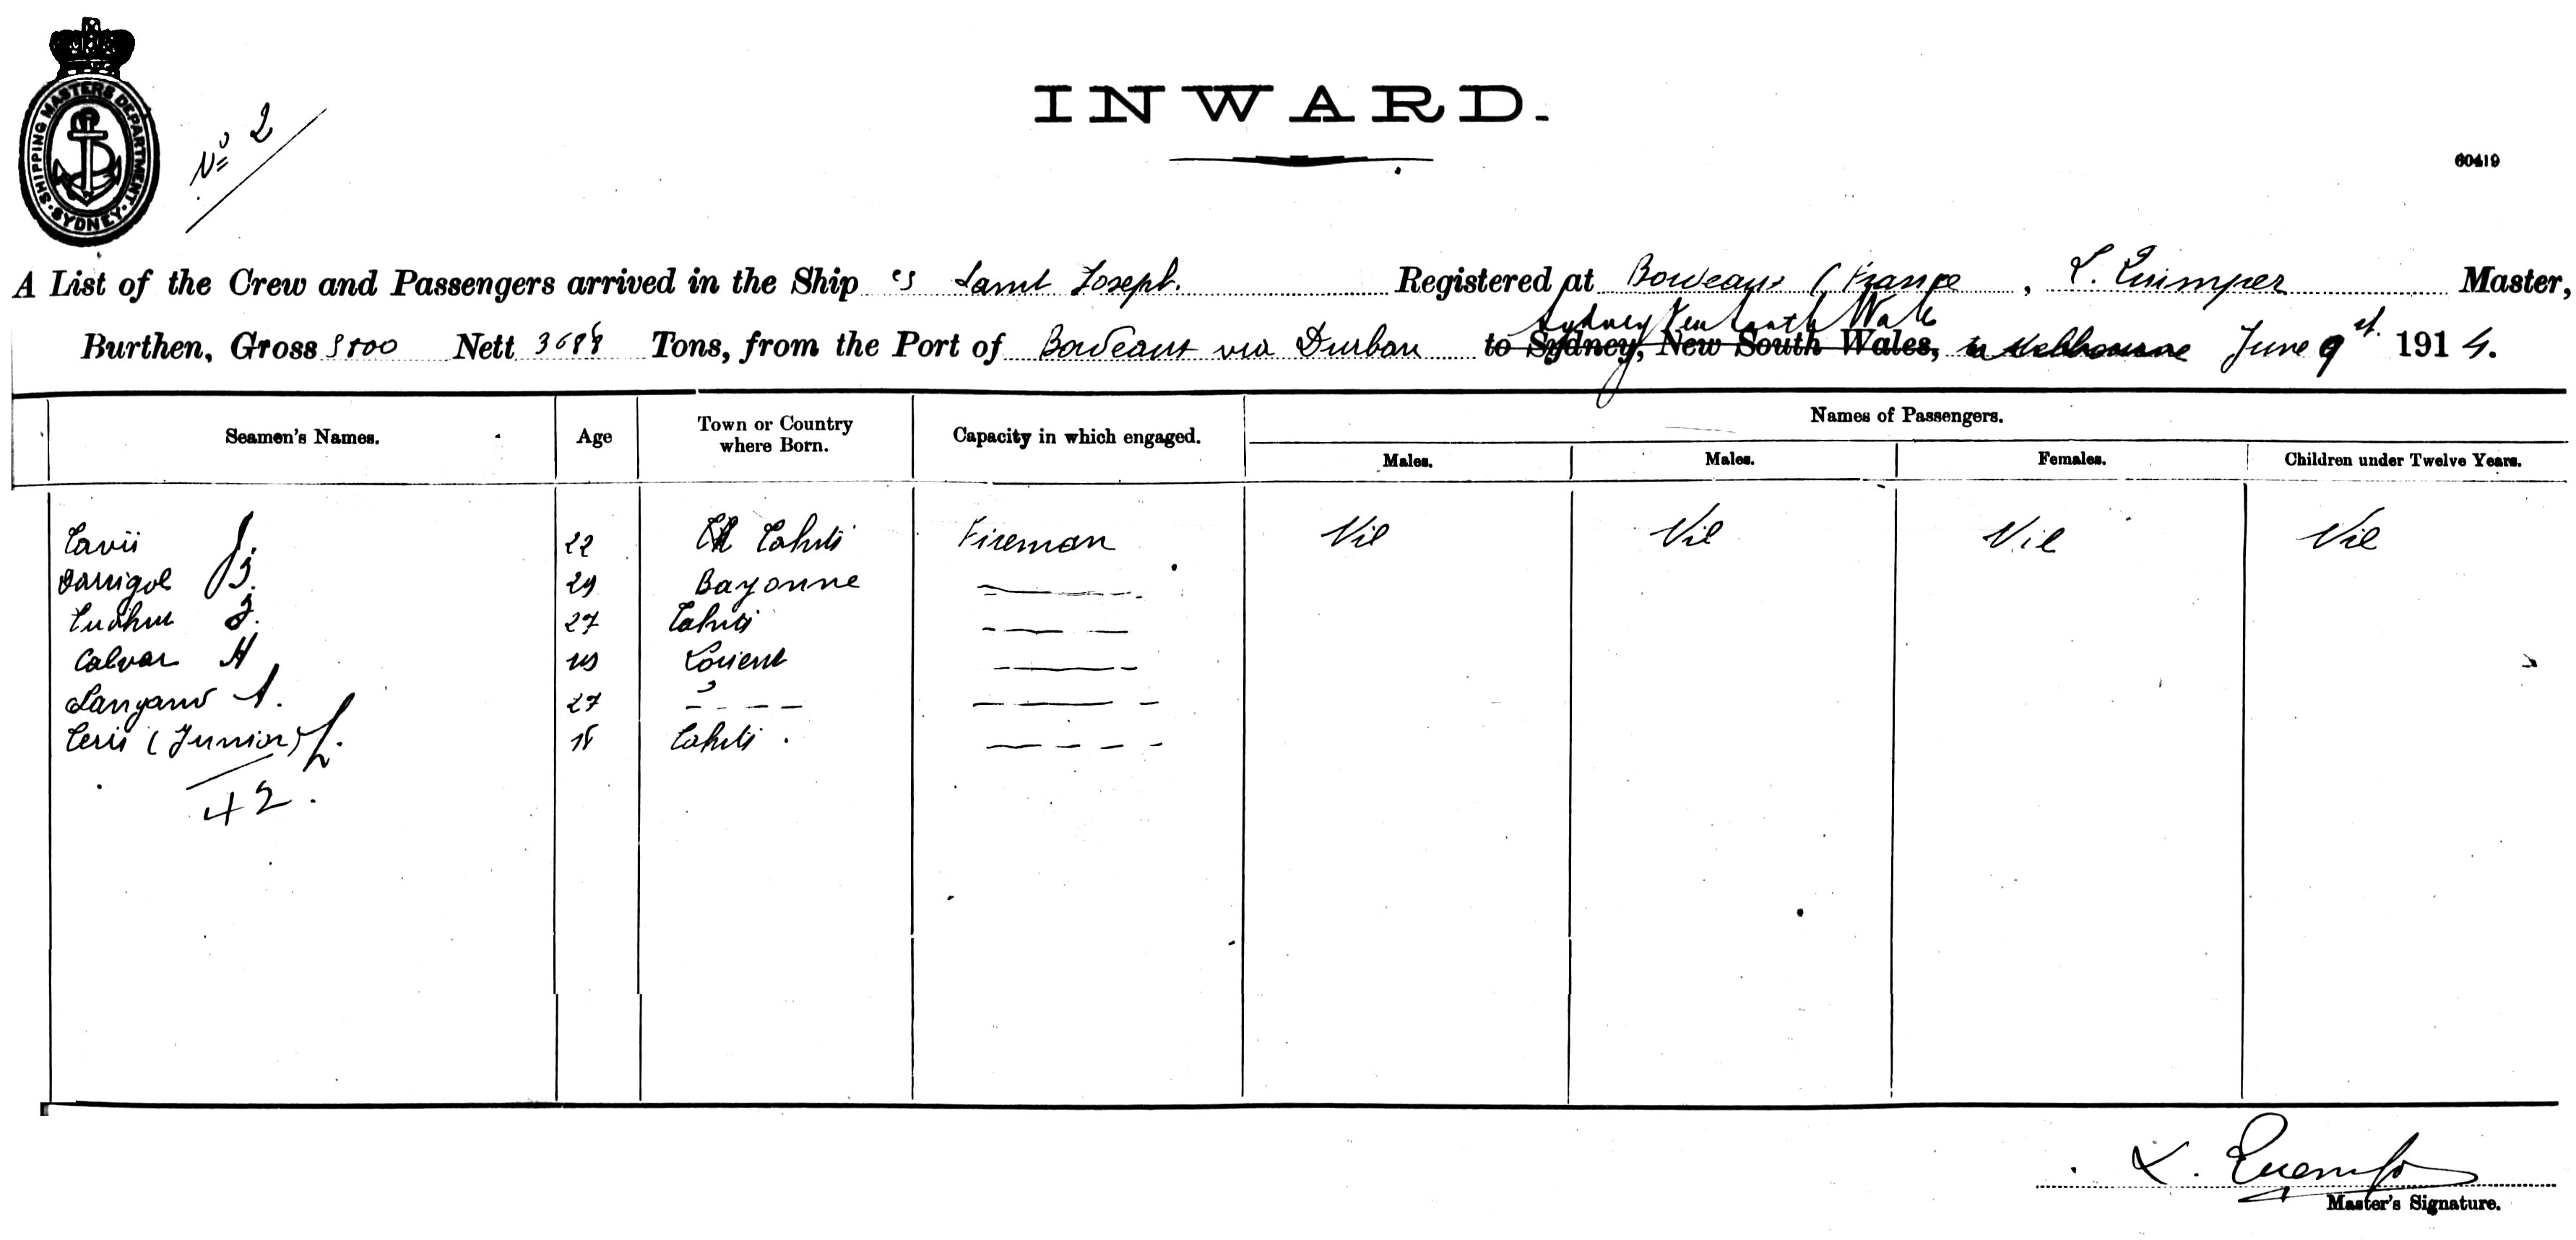 SHIPPING MASTERS DEPARTMENT
SYDNEY
No 2
INWARD.
60419
A List of the Crew and Passengers arrived in the Ship ss Saint Joseph. Registered at Bordeaux (France, L. Quimper Master,
Sydney New South Wales
Burthen, Gross Nett Tons, from the Port of Bordeaux via Durban to Sydney, New South Wales, to Melbourne June 9st. 1914.
Names of Passengers.
Seamen's Names. Age Town or Country where Born. Capacity in which engaged. Males. Males. Females. Children under Twelve Years.
Tavii 22 Tahiti Fireman Nil Nil Nil Nil
Darrigol J. 29 Bayonne
J. 27 Tahiti
Calvar H 19 Lorient
A. 27
Terii (Junior) 18 Tahiti.
42.
L. Quemper
Master's Signature.